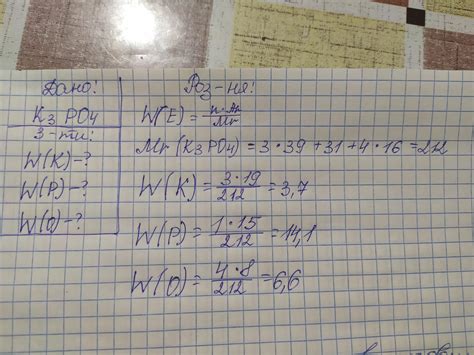 Дано:
K3 PO4
З-ти:
W(K)-?
W(P)-?
W(O)-?
Роз-ня:
W(E) = n·Ar/Mr
Mr(K3PO4) = 3·39+31+4·16=212
W(K) = 3·19/212 = 3,7
W(P) = 1·15/212 = 14,1
W(O) = 4·8/212 = 6,6